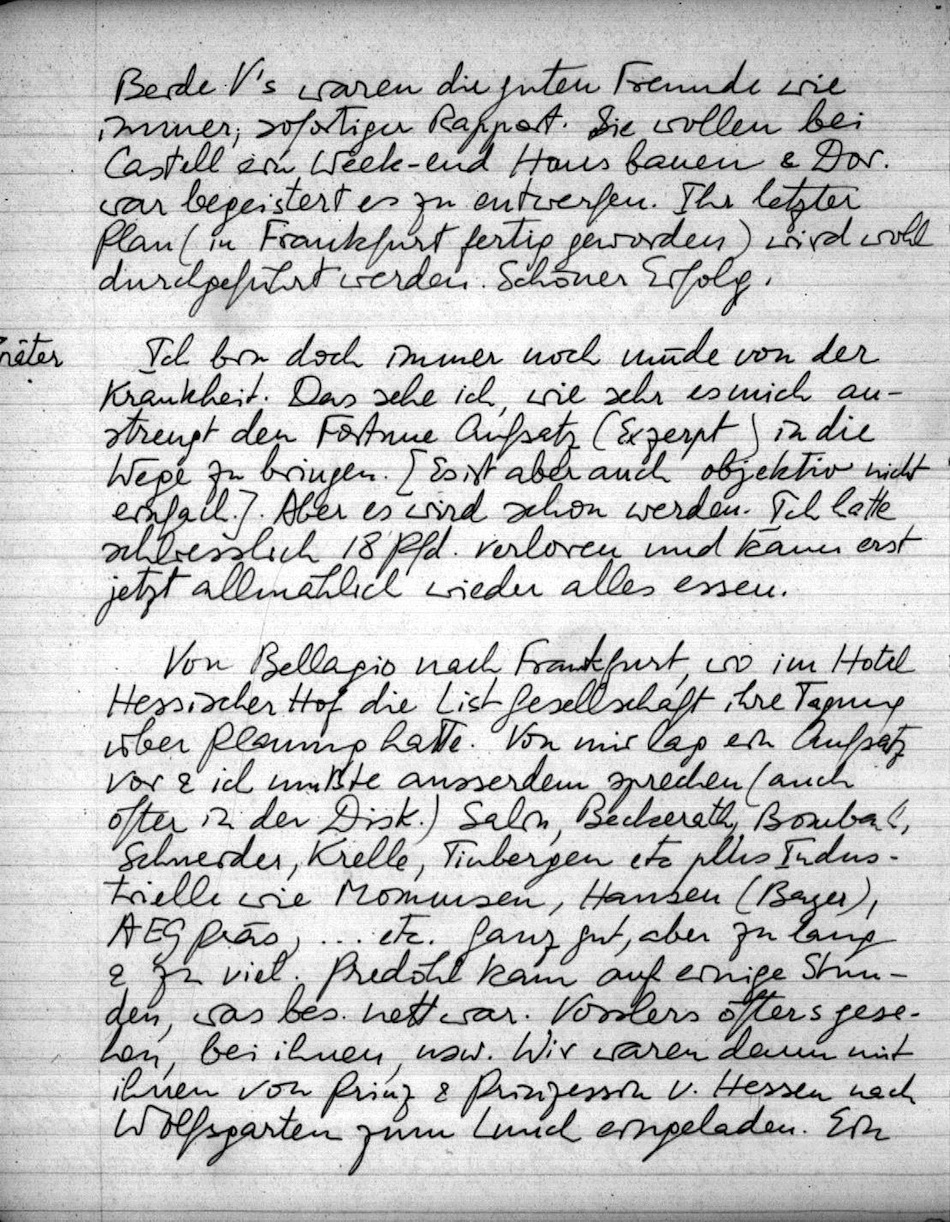 Beide V's waren die guten Freunde wie
immer; sofortiger Rapport. Sie wollen bei
Castell ein Week-end Haus bauen & Dor.
war begeistert es zu entwerfen. Ihr letzter
Plan (in Frankfurt fertig geworden) wird wohl
durchgeführt werden. Schöner Erfolg.
Ich bin doch immer noch müde von der
Krankheit. Das sehe ich, wie sehr es mich an-
strengt den Fortune Aufsatz (Exzerpt) in die
Wege zu bringen. [Es ist aber auch objektiv nicht
einfach.]. Aber es wird schon werden. Ich hatte
schliesslich 18 Pfd. verloren und kann erst
jetzt allmählich wieder alles essen.
Von Bellagio nach Frankfurt, wo im Hotel
Hessischer Hof die List Gesellschaft ihre Tagung
über Planung hatte. Von mir lag ein Aufsatz
vor & ich mußte ausserdem sprechen (auch
öfter in der Disk.) Salin, Beckerath, Bombach,
Schneider, Krelle, Tinbergen etc plus Indus-
trielle wie Mommsen, Hansen (Bayer),
AEG Präs, ... etc. Ganz gut, aber zu lang
& zu viel. Predöhl kam auf einige Stun-
den, was bes. nett war. Vosslers öfters gese-
hen, bei ihnen, usw. Wir waren dann mit
ihnen von Prinz & Prinzessin v. Hessen nach
Wolfsgarten zum Lunch eingeladen. Ein